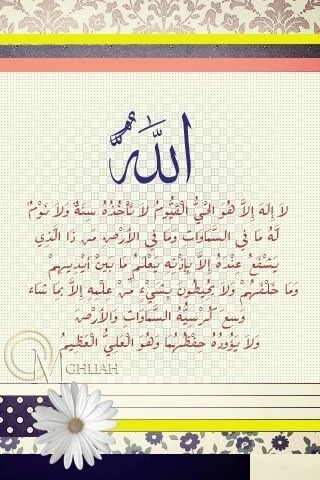 ٱللَّهُ
لاَ إِلَهَ إِلاَّ هُوَ الْحَيُّ الْقَيُّومُ لاَ تَأْخُذُهُ سِنَةٌ وَلاَ نَوْمٌ
لَهُ مَا فِي السَّمَاوَاتِ وَمَا فِي الأَرْضِ مَن ذَا الَّذِي
يَشْفَعُ عِنْدَهُ إِلاَّ بِإِذْنِهِ يَعْلَمُ مَا بَيْنَ أَيْدِيهِمْ
وَمَا خَلْفَهُمْ وَلاَ يُحِيطُونَ بِشَيْءٍ مِّنْ عِلْمِهِ إِلاَّ بِمَا شَاء
وَسِعَ كُرْسِيُّهُ السَّمَاوَاتِ وَالأَرْضَ
وَلاَ يَؤُودُهُ حِفْظُهُمَا وَهُوَ الْعَلِيُّ الْعَظِيمُ
MGHLIAH